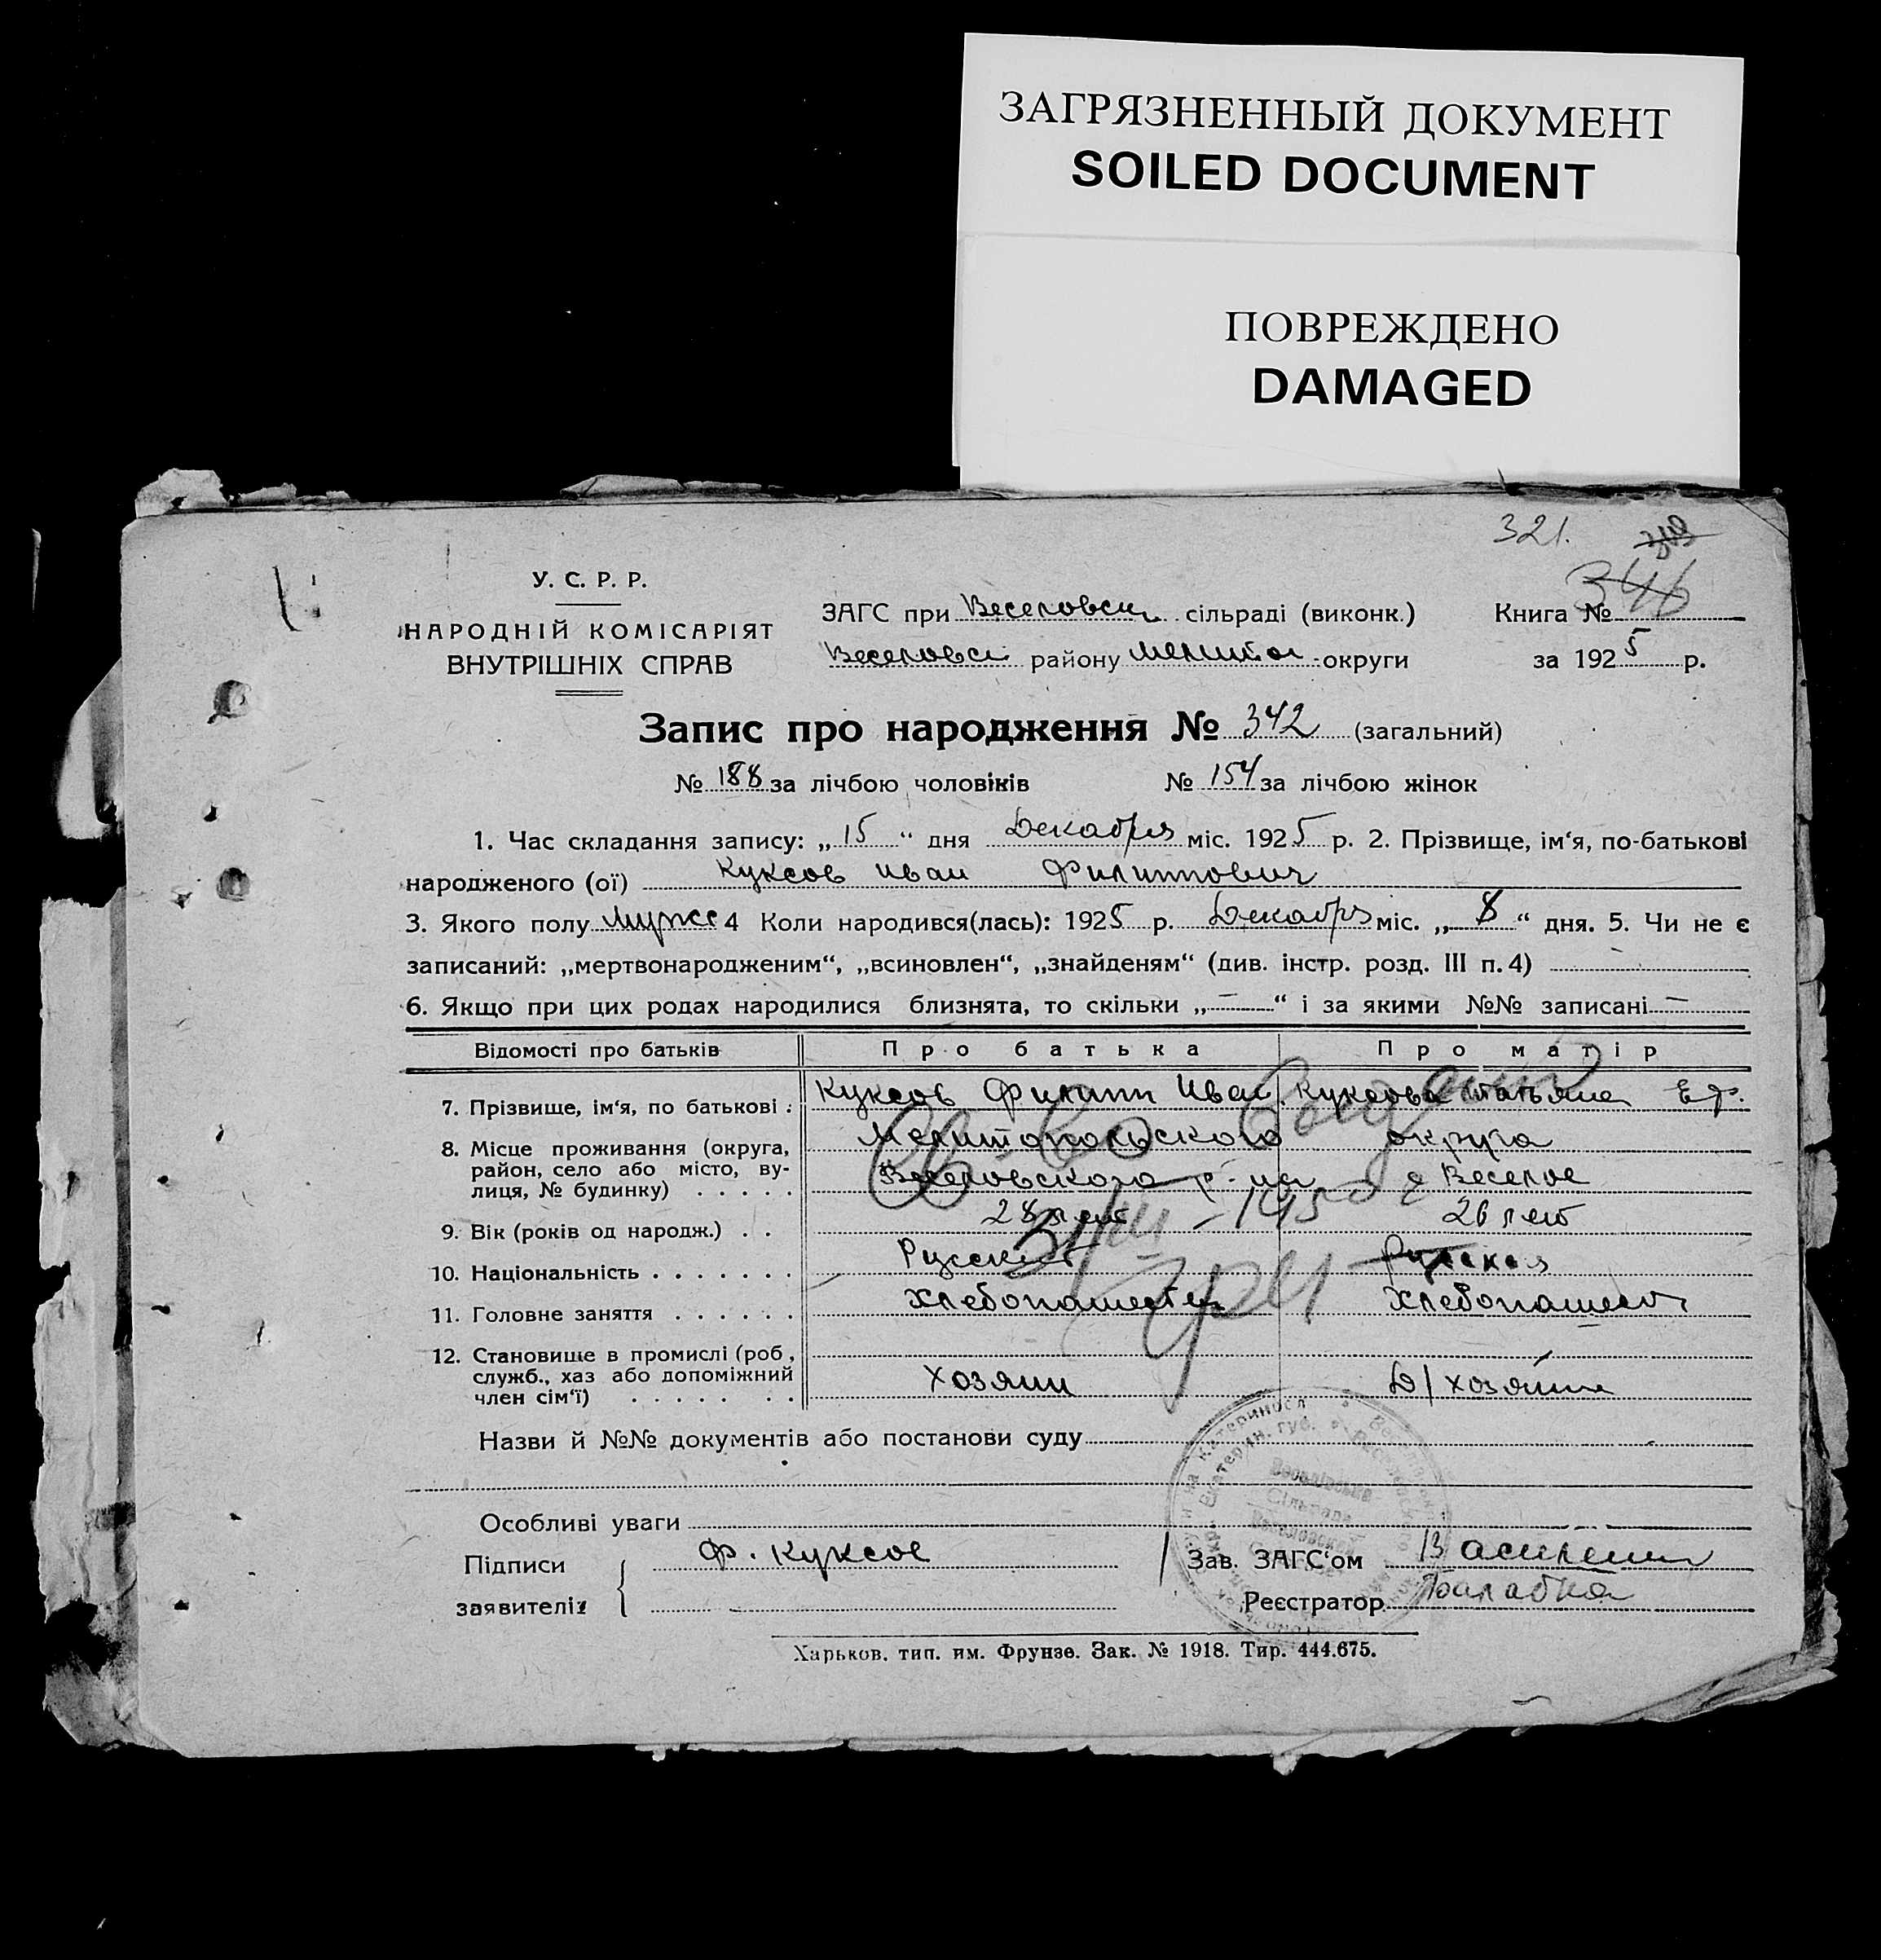 ЗАГРЯЗНЕННЫЙ ДОКУМЕНТ
SOILED DOCUMENT
ПОВРЕЖДЕНО
DAMAGED
321. 349
346
У. С. Р. Р.
НАРОДНІЙ КОМІСАРІЯТ
ВНУТРІШНІХ СПРАВ
ЗАГС при Веселовск сільраді (виконк.) Книга №
Веселовск району Мелитоп округи за 1925 р.
Запис про народження № 342 (загальний)
№ 188 за лічбою чоловіків № 154 за лічбою жінок
1. Час складання запису: „15“ дня Декабря міс. 1925 р. 2. Прізвище, ім‘я, по-батькові
народженого (ої) Куксов Иван Филиппович
3. Якого полу мужс 4 Коли народився(лась): 1925 р. Декабря міс. „8“ дня. 5. Чи не є
записаний: „мертвонародженим“, „всиновлен“, „знайденям“ (див. інстр. розд. III п. 4)
6. Якщо при цих родах народилися близнята, то скільки „—“ і за якими №№ записані —
Відомості про батьків Про батька Про матір
7. Прізвище, ім‘я, по батькові : Куксов Филипп Иван. Куксова Татьяна Еф.
8. Місце проживання (округа, район, село або місто, вулиця, № будинку) . . . . . Мелитопольского округа
Веселовского р-на с Веселое
9. Вік (років од народж.) . . 28 лет 26 лет
10. Національність . . . . . . . Русский Русская
11. Головне заняття . . . . . . Хлебопашец Хлебопашец
12. Становище в промислі (роб, служб., хаз або допоміжний член сім‘ї) . . . . . . . Хозяин Д/хозяин
Св-во выдано
Назви й №№ документів або постанови суду
Особливі уваги
Підписи Ф. Куксов Зав. ЗАГС‘ом
заявителів Реєстратор
Харьков. тип. им. Фрунзе. Зак. № 1918. Тир. 444.675.